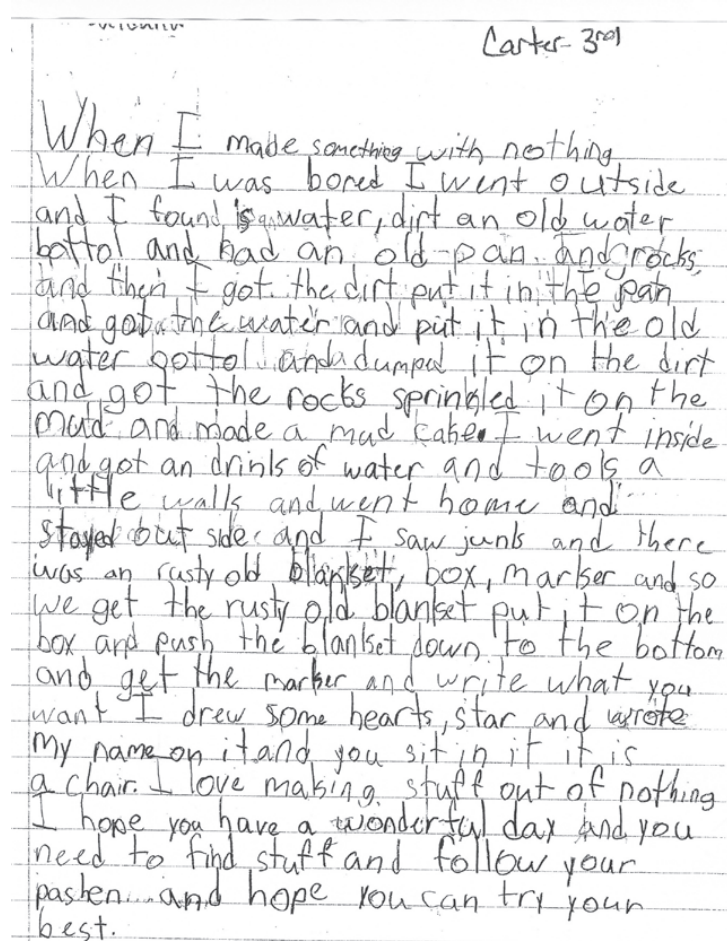 Carter- 3rd
When I made something with nothing
When I was bored I went outside
and I found water, dirt an old water
bottol and had an old pan. and rocks,
and then I got the dirt put it in the pan
and got the water and put it in the old
water bottol and dumped it on the dirt
and got the rocks sprinkled it on the
mud and made a mud cake. I went inside
and got an drink of water and took a
little walk and went home and
stayed out side and I saw junk and there
was an rusty old blanket, box, marker and so
we get the rusty old blanket put it on the
box and push the blanket down to the bottom
and get the marker and write what you
want I drew some hearts, star and wrote
my name on it and you sit in it it is
a chair. I love making stuff out of nothing
I hope you have a wonderful day and you
need to find stuff and follow your
pashen and hope you can try your
best.